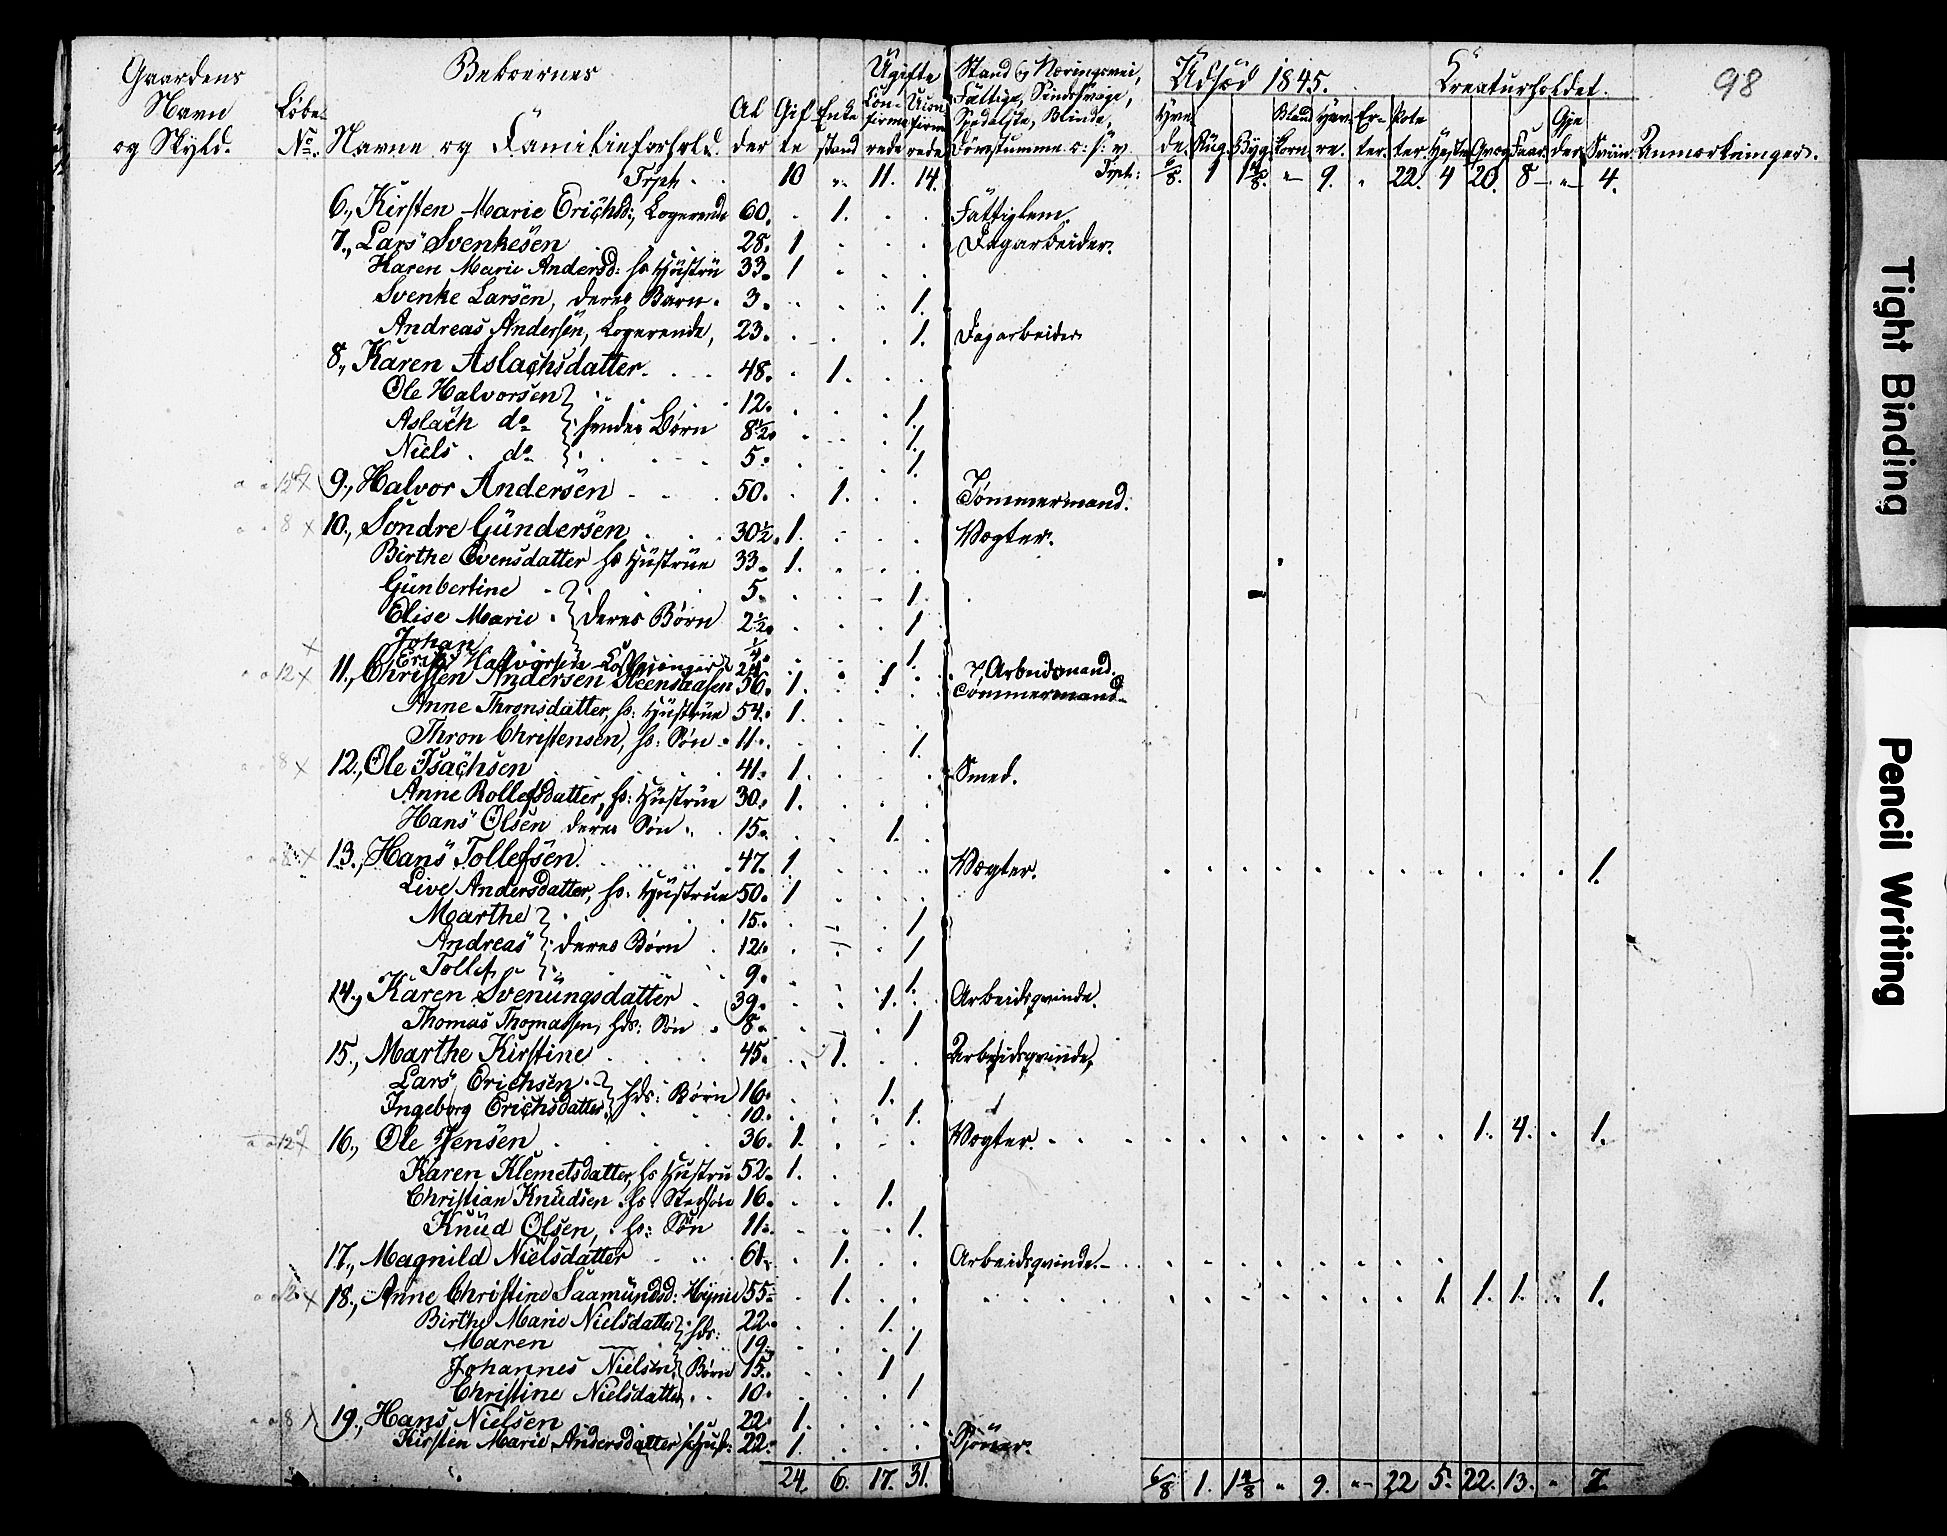 Gaardens
Navn
og Skyld.
Løbe
No.
Beboernes
Navne og Familieforhold.
Al
der
Gif
te
Enke
stand
Ugifte
Con-
firme
rede
Ucon
firme
rede
Stand og Næringsvei,
Fattige, Sindssvage,
Spedalske, Blinde,
Døvstumme o: s: v.
Udsæd 1845.
Hve
de.
Rug.
Byg.
Bland
korn.
Hav-
re.
Er-
ter.
Pote
ter.
Creaturholdet.
Heste
Qvæg
Faar.
Gje
der
Sviin.
Anmærkninger.
98
Trpt. 10 " 11. 14. Trpt: 6/8. 1 1 4/8. " 9. " 22. 4 20. 8 " 4.
6., Kirsten Marie Erichsd:, Logerende 60. 1. Fattiglem.
7., Lars Svenkesen 28. 1 Dagarbeider.
Karen Marie Andersd: hs Hustru 33. 1
Svenke Larsen, deres Barn. 3. 1.
Andreas Andersen, Logerende, 23. 1. Dagarbeider
8., Karen Aslachsdatter 48. 1.
Ole Halvorsen 12. 1.
Aslach do hendes Børn 8½ 1.
Niels do 5. 1.
9., Halvor Andersen 50. 1. Tømmermand.
10., Sondre Gundersen 30½. 1. Vogter.
Birthe Evensdatter hs Hustrue 33. 1.
Gunbertine 5. 1.
Elise Marie deres Børn 2½ 1
Johan ¼. 1
Halvorsen 24. 1 Arbeidsmand.
11., Christen Andersen 56. 1. Tømmermand
Anne Thronsdatter, hs: Hustrue 54. 1.
Thron Christensen, hs: Søn 11. 1.
12., Ole Isachsen 41. 1. Smed.
Anne Rollefsdatter, hs: Hustrue 30. 1.
Hans Olsen deres Søn 15. 1.
13., Hans Tollefsen 47. 1 Vogter. 1.
Live Andersdatter, hs: Hustrue 50. 1
Marthe 15. 1
Andreas deres Børn 12. 1
Tollef 9. 1.
14., Karen Svenungsdatter 39. 1. Arbeidsqvinde.
Thomas Thomassen, hds: Søn 8. 1
15., Marthe Kirstine 45. 1. Arbeidsqvinde,
Lars Erichsen hds: Børn 16. 1.
Ingeborg Erichsdatter 10. 1.
16., Ole Jensen 36. 1. Vogter. 1. 4. 1.
Karen Klemetsdatter, hs Hustru 52. 1.
Christian Knudsen hs: Stedsøn 16. 1.
Knud Olsen, hs: Søn 11. 1.
17., Magnild Nielsdatter 61. 1. Arbeidsqvinde.
18., Anne Christine Saamundsd: 55 1. 1. 1. 1. 1.
Birthe Marie Nielsdatter hds: 22. 1.
Maren 19. 1
Johannes Nielsen Børn 15. 1
Christine Nielsdatter 10. 1
19., Hans Nielsen 22. 1.
Kirsten Marie Andersdatter hs Hust: 22. 1. Sjøvær.
24. 6. 17. 31. 6/8 1. 1 4/8 " 9. " 22 5. 22. 13. " 7.
Tight Binding
Pencil Writing